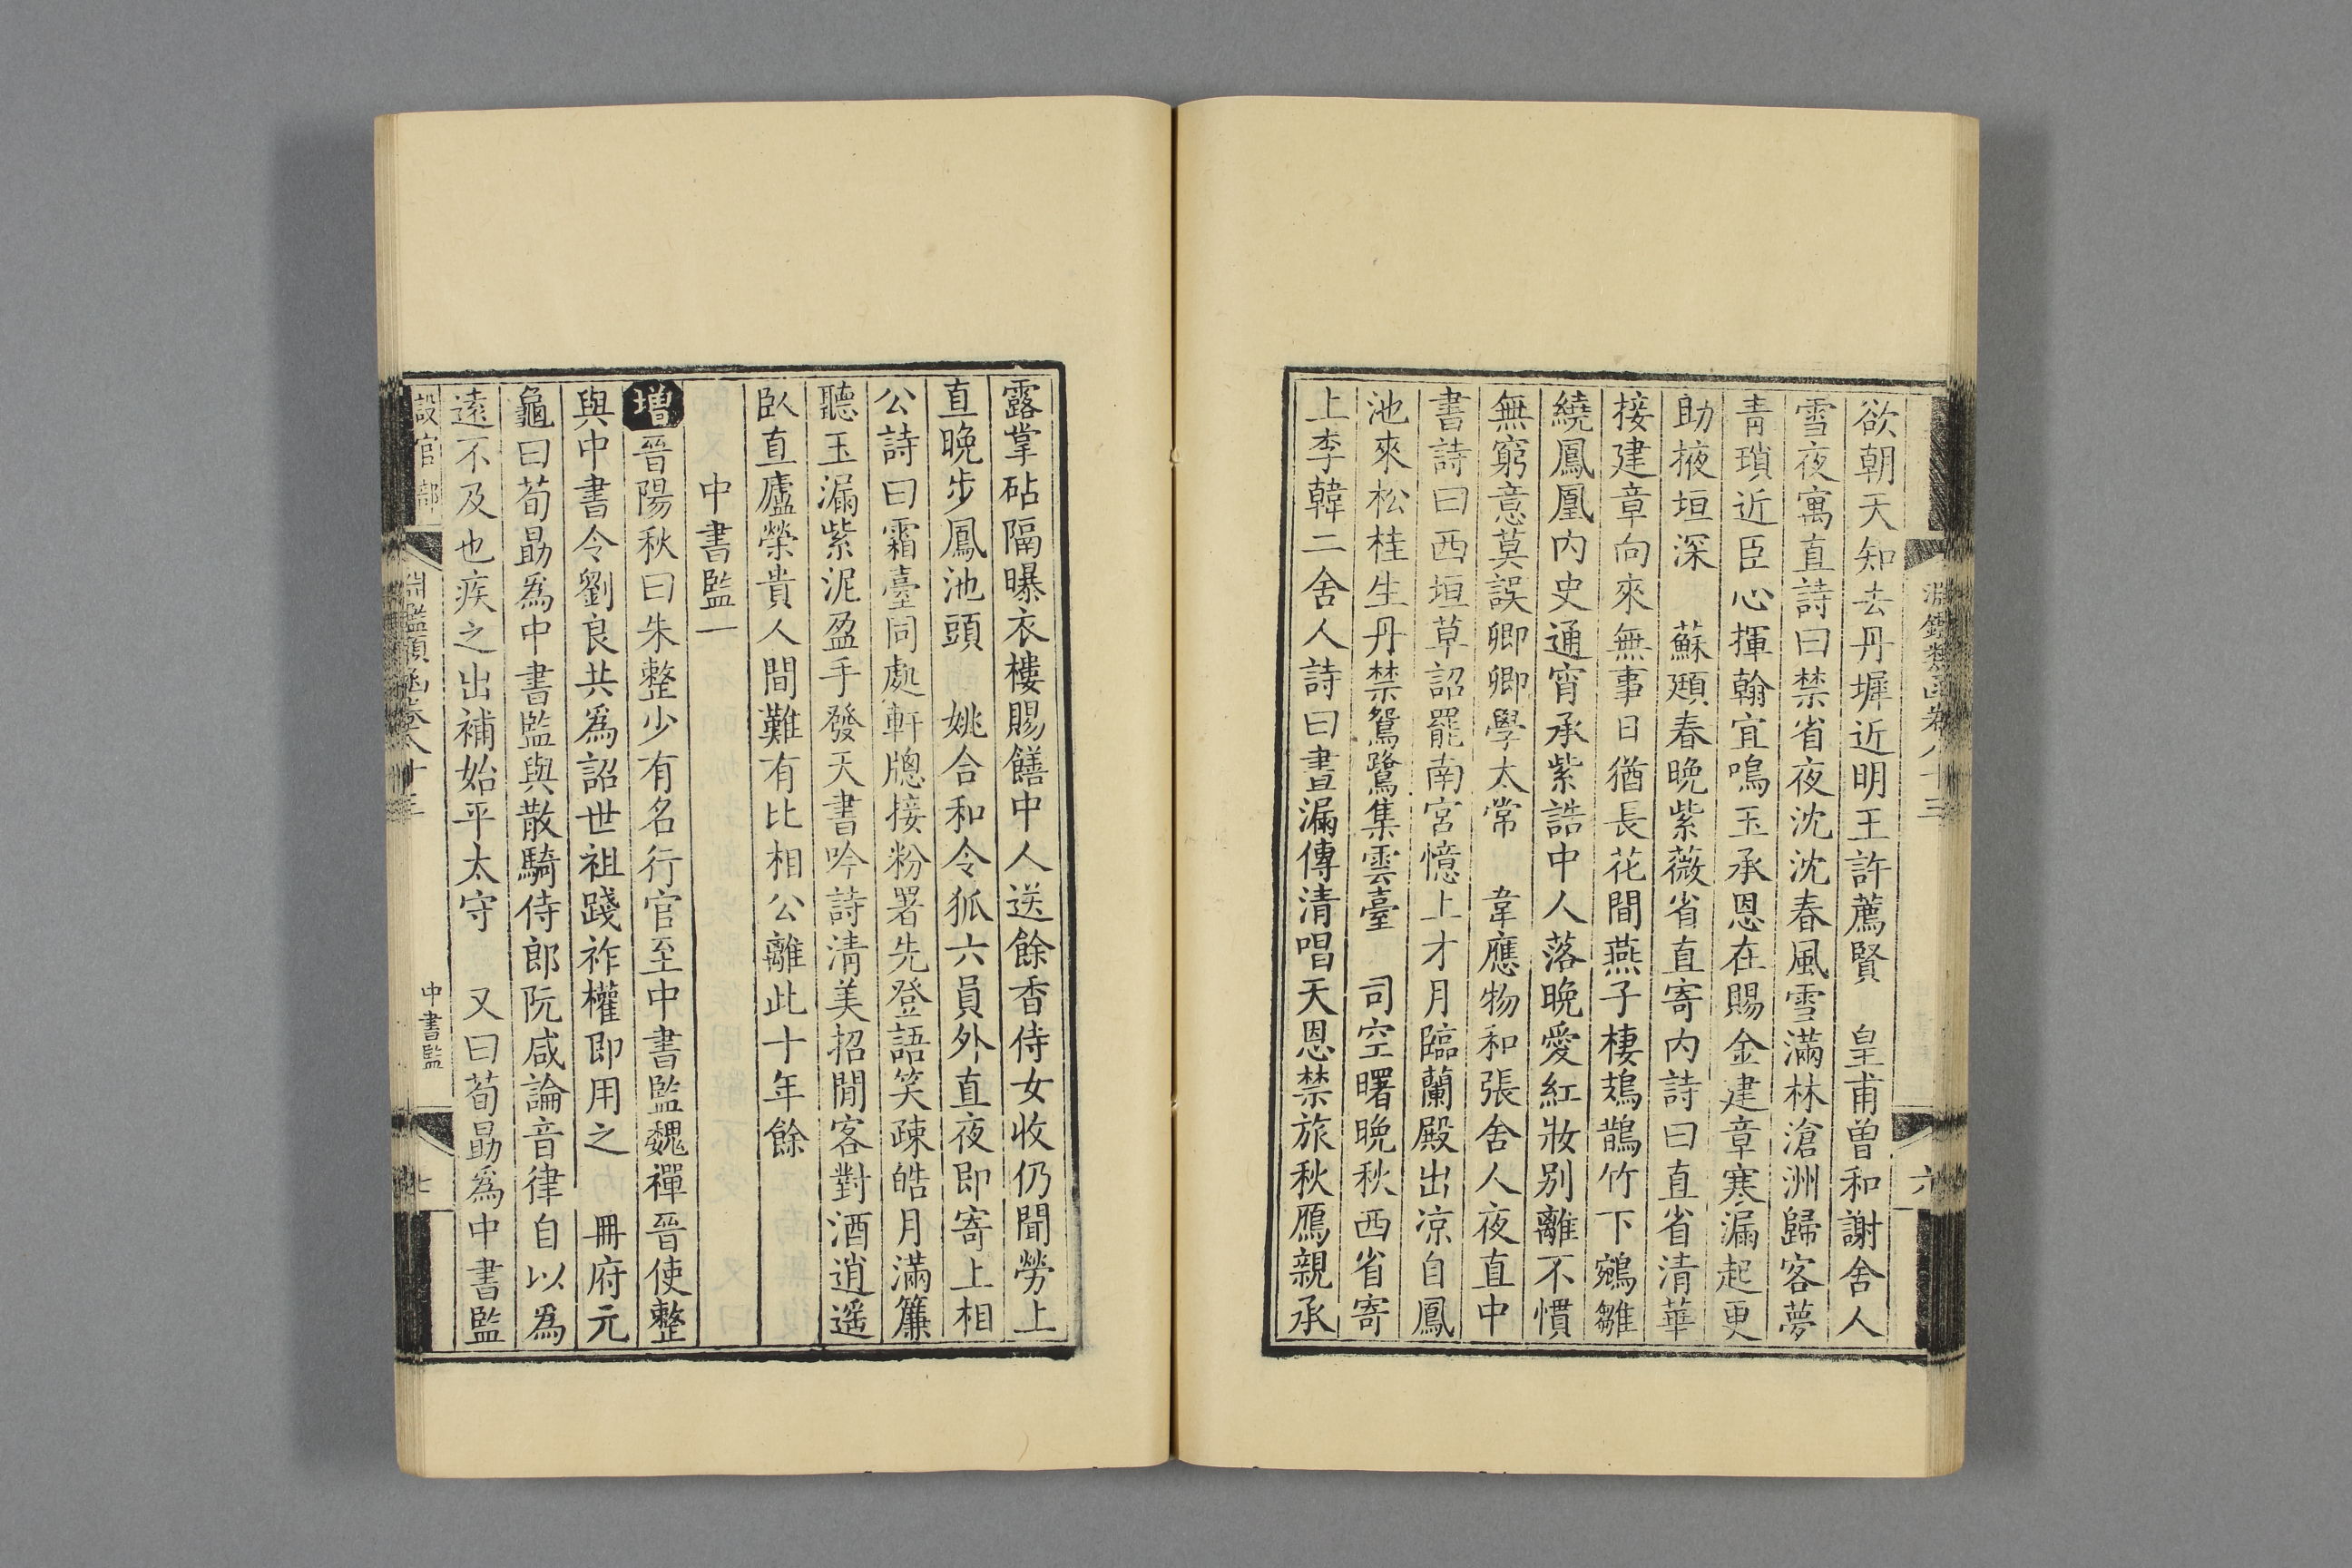 淵鑑類函卷八十三
六
欲朝天知去丹墀近明王許薦賢　皇甫曾和謝舍人
雪夜寓直詩曰禁省夜沈沈春風雪滿林滄洲歸客夢
青瑣近臣心揮翰宜鳴玉承恩在賜金建章寒漏起更
助掖垣深　蘇頲春晚紫薇省直寄內詩曰直省清華
接建章向來無事日猶長花間燕子棲鳷鵲竹下鵷雛
繞鳳凰內史通宵承紫誥中人落晚愛紅妝別離不慣
無窮意莫誤卿卿學太常　韋應物和張舍人夜直中
書詩曰西垣草詔罷南宮憶上才月臨蘭殿出凉自鳳
池來松桂生丹禁鴛鷺集雲臺　司空曙晚秋西省寄
上李韓二舍人詩曰晝漏傳清唱天恩禁旅秋鴈親承
露掌砧隔曝衣樓賜饍中人送餘香侍女收仍聞勞上
直晚步鳳池頭　姚合和令狐六員外直夜即寄上相
公詩曰霜臺同處軒牕接粉署先登語笑疎皓月滿簾
聽玉漏紫泥盈手發天書吟詩清美招閒客對酒逍遙
臥直廬榮貴人間難有比相公離此十年餘
中書監一
增晉陽秋曰朱整少有名行官至中書監魏禪晉使整
與中書令劉良共爲詔世祖踐祚權即用之　冊府元
龜曰荀勗爲中書監與散騎侍郎阮咸論音律自以爲
遠不及也疾之出補始平太守　又曰荀勗爲中書監
設官部
淵鑑類函卷八十三
中書監
七